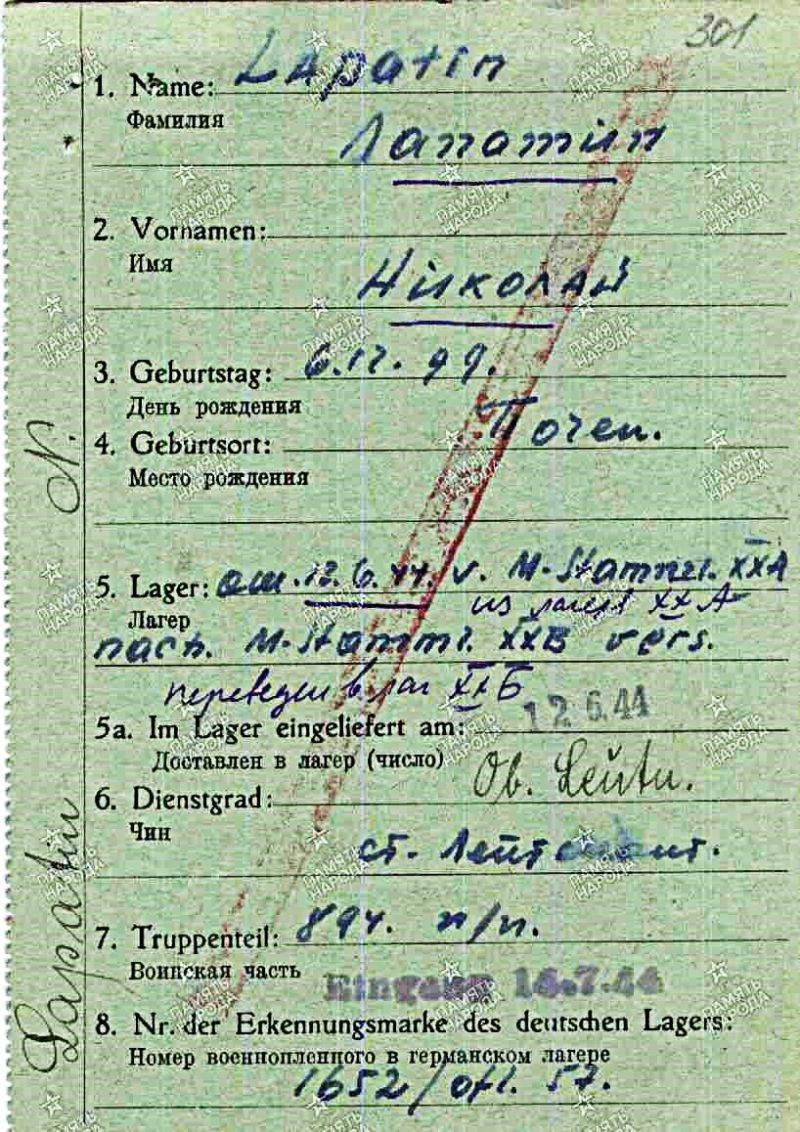 301
1. Name: Lapatin
Фамилия
Лапатин
2. Vornamen:
Имя
Николай
3. Geburtstag: 6.12.99.
День рождения
4. Geburtsort: Почеп.
Место рождения
5. Lager: am. 12.6.44. v. M-Stamml. XXA
Лагер из лагеря XXA
nach. M-Stamml. XXB vers.
переведен в лаг XXБ
5a. Im Lager eingeliefert am: 12.6.44
Доставлен в лагер (число)
6. Dienstgrad: Ob. Leutn.
Чин
ст. Лейтенант.
7. Truppenteil: 894. п/п.
Воинская часть
Eingang 14.7.44
8. Nr. der Erkennungsmarke des deutschen Lagers:
Номер военнопленного в германском лагере
1652/ofl. 57.
Lapatin N.
ПАМЯТЬ НАРОДА